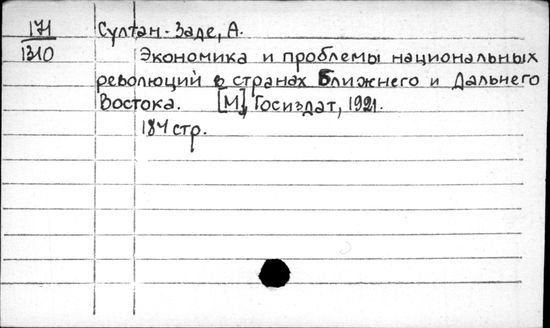 171 Султан-Заде, А.
1310 Экономика и проблемы национальных
революций в странах Ближнего и Дальнего
Востока. [М], Госиздат, 1921.
184 стр.